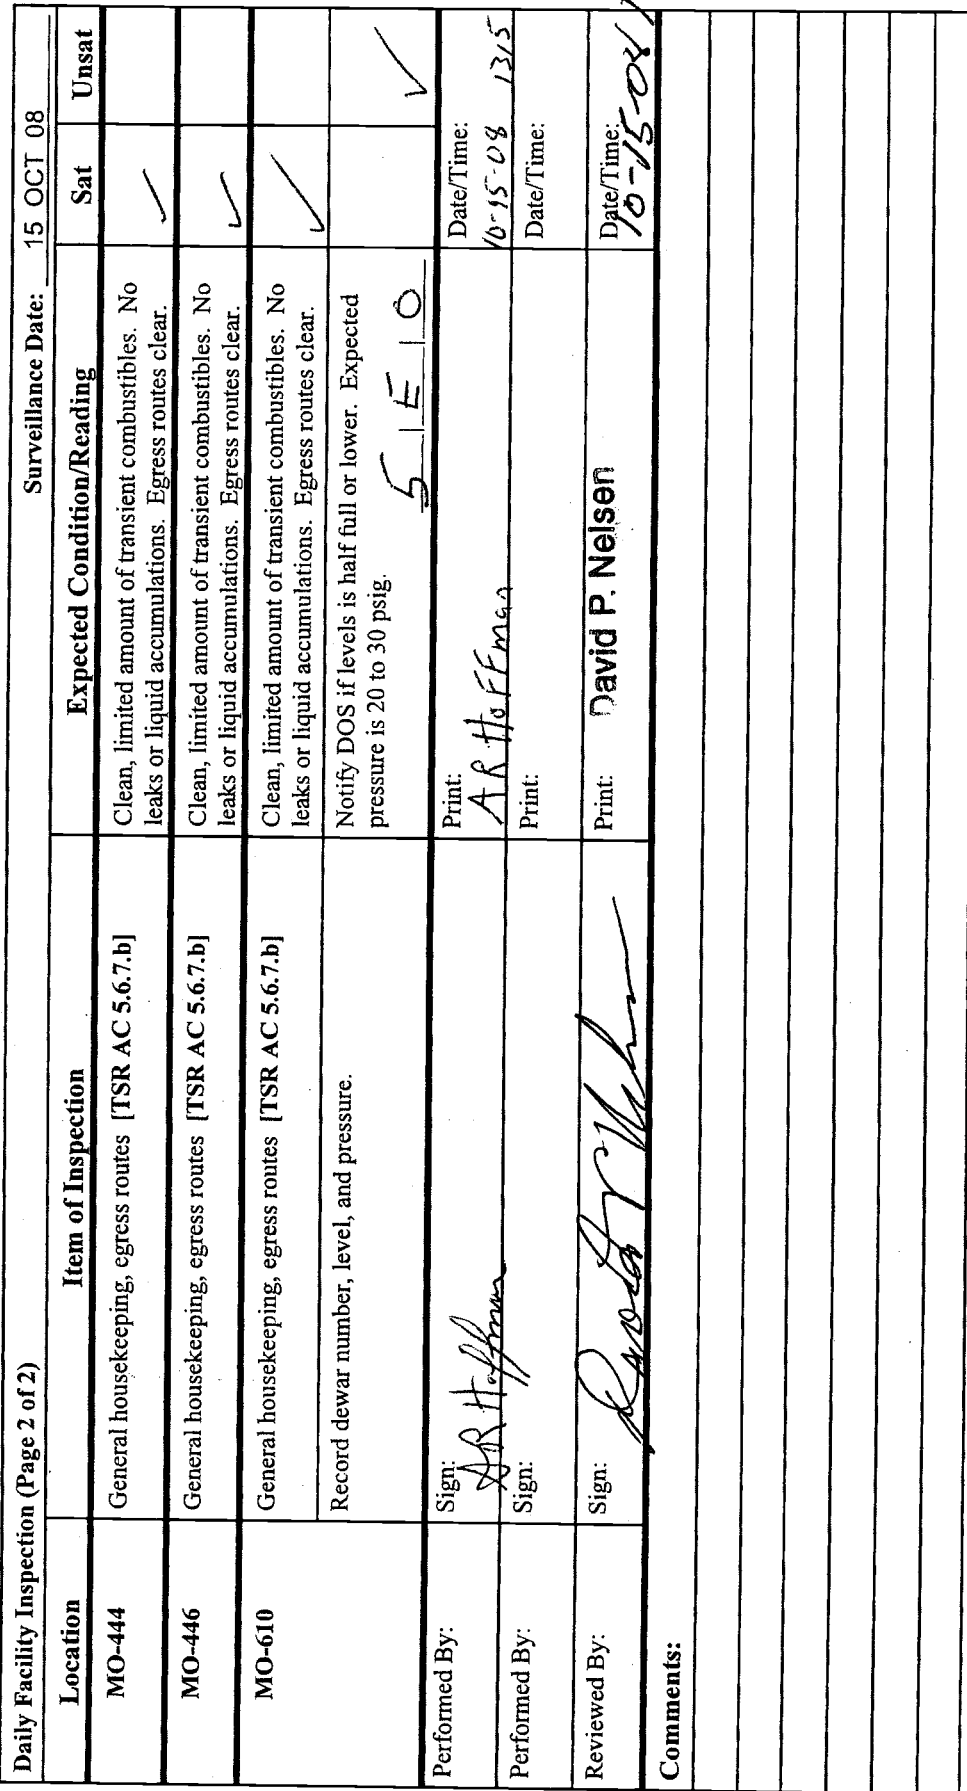 Daily Facility Inspection (Page 2 of 2) Surveillance Date: 15 OCT 08
Location Item of Inspection Expected Condition/Reading Sat Unsat
MO-444 General housekeeping, egress routes [TSR AC 5.6.7.b] Clean, limited amount of transient combustibles. No
leaks or liquid accumulations. Egress routes clear. ✓
MO-446 General housekeeping, egress routes [TSR AC 5.6.7.b] Clean, limited amount of transient combustibles. No
leaks or liquid accumulations. Egress routes clear. ✓
MO-610 General housekeeping, egress routes [TSR AC 5.6.7.b] Clean, limited amount of transient combustibles. No
leaks or liquid accumulations. Egress routes clear. ✓
Record dewar number, level, and pressure. Notify DOS if levels is half full or lower. Expected
pressure is 20 to 30 psig. 5 | E | 0 ✓
Performed By: Sign: Print: Date/Time:
AR Hoffman AR HoFFman 10-15-08 1315
Performed By: Sign: Print: Date/Time:
Reviewed By: Sign: Print: David P. Nelsen Date/Time:
10-15-08
Comments: